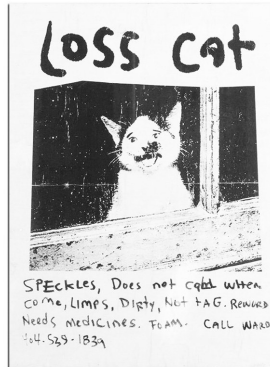 Loss cat
SPEckles, Does not call when
come, Limps, Dirty, Not tAG. Reword
Needs medicines. Foam. CALL WARD
404-539-1839